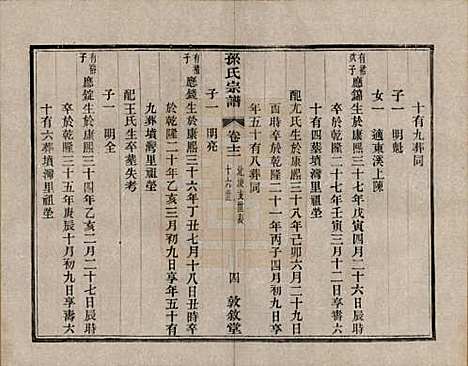 十有九葬同
子一 明魁
女一 適東溪上陳
有裕次子 應錦生於康熙三十七年戊寅四月二十六日辰時
卒於乾隆二十七年壬寅三月十一日享壽六
十有四葬墳灣里祖塋
配尤氏生於康熙三十八年己卯六月二十九日
酉時卒於乾隆二十一年丙子四月初九日享
年五十有八葬同
子一 明亮
孫氏宗譜 卷十二 北渡支世表 十六世 四 敦敘堂
有 子 應錢生於康熙三十六年丁丑七月十八日丑時卒
於乾隆二十年乙亥三月初九日享年五十有
九葬墳灣里祖塋
配王氏生卒葬失考
子一 明全
有裕子 應錠生於康熙三十四年乙亥二月二十七日辰時
卒於乾隆三十五年庚辰十月初三日享壽六
十有六葬墳灣里祖塋